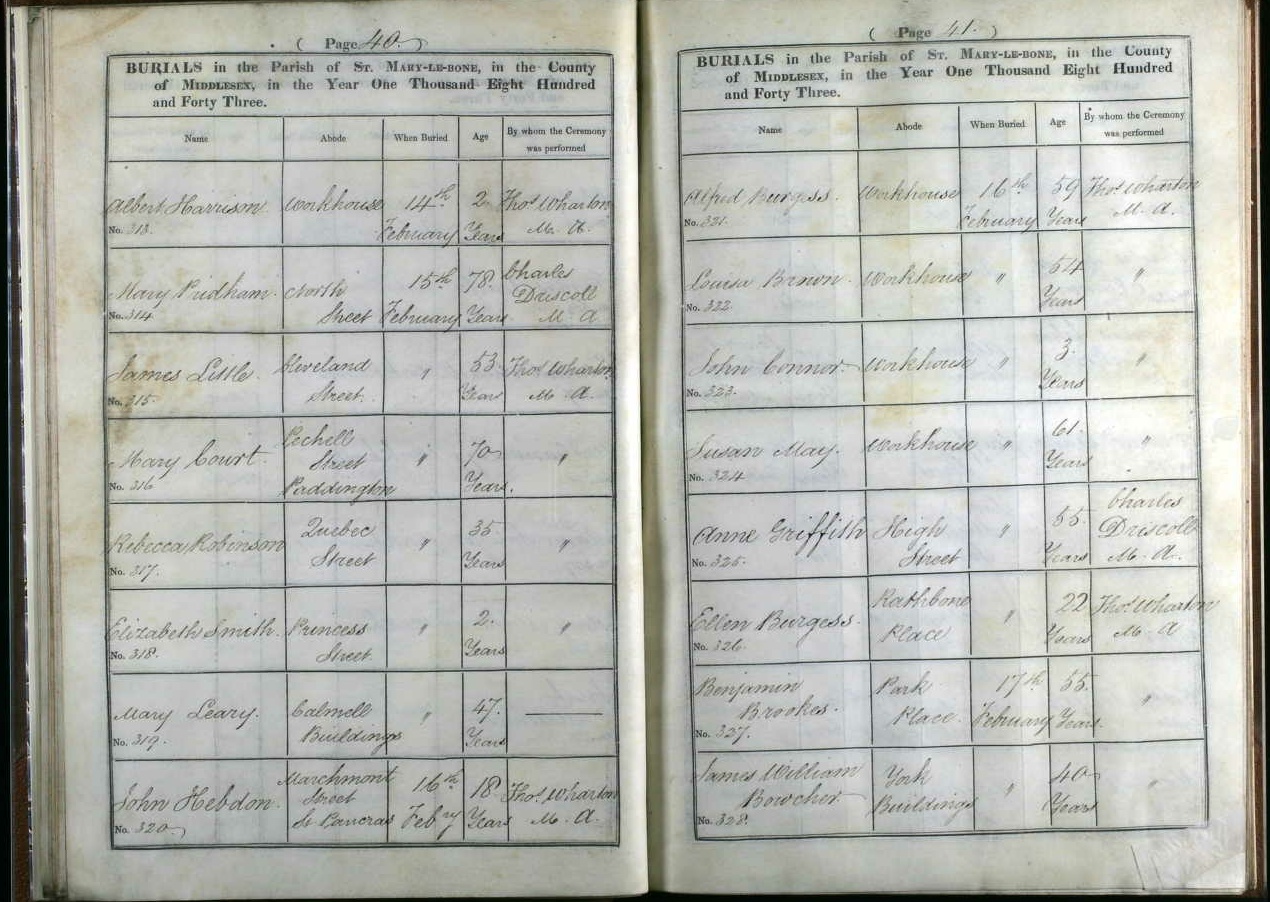 ( Page 40. )
BURIALS in the Parish of ST. MARY-LE-BONE, in the County
of MIDDLESEX, in the Year One Thousand Eight Hundred
and Forty Three.
Name Abode When Buried Age By whom the Ceremony
was performed
Albert Harrison. Workhouse 14th 2 Thos Wharton
No. 313. February Years M. A.
Mary Pridham. North 15th 78. Charles
Driscoll
No. 314 Street February Years M. A
James Little. Cleveland " 53 Thos Wharton
No. 315. Street. Years M. A.
Mary Court. Street " 70 "
No. 316 Paddington Years.
Rebecca Robinson Quebec " 35 "
No. 317. Street Years
Elizabeth Smith. Princess " 2. "
No. 318. Street. Years
Mary Leary. Calmell " 47.
No. 319. Buildings Years
Marchmont
John Hebdon. Street 16th 18 Thos Wharton
No. 320 St Pancras Febry Years M. A.
( Page 41. )
BURIALS in the Parish of ST. MARY-LE-BONE, in the County
of MIDDLESEX, in the Year One Thousand Eight Hundred
and Forty Three.
Name Abode When Buried Age By whom the Ceremony
was performed
Alfred Burgess. Workhouse 16th 59 Thos Wharton
No. 321. February Years M. A.
Louisa Brown. Workhouse " 54 "
No. 322 Years
John Connor. Workhouse " 3. "
No. 323. Years
Susan May. Workhouse " 61. "
No. 324 Years
Charles
Anne Griffith High " 55. Driscoll
No. 325. Street Years M. A.
Ellen Burgess. Rathbone " 22 Thos Wharton
No. 326. Place Years M. A
Benjamin Park 17th 55. "
Brookes. Place. February Years.
No. 327.
James William York " 40 "
Bowcher. Buildings Years
No. 328.